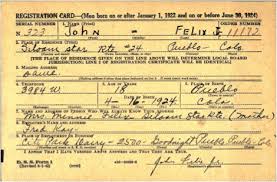 REGISTRATION CARD—(Men born on or after January 1, 1922 and on or before June 30, 1924)
SERIAL NUMBER 1. NAME (Print) ORDER NUMBER
N 323 John — Felix Jr 11172
2. PLACE OF RESIDENCE (Print)
Siloam Star Rte #24 Pueblo - Colo.
[THE PLACE OF RESIDENCE GIVEN ON THE LINE ABOVE WILL DETERMINE LOCAL BOARD
JURISDICTION; LINE 2 OF REGISTRATION CERTIFICATE WILL BE IDENTICAL]
3. MAILING ADDRESS
Same
4. TELEPHONE 5. AGE IN YEARS 6. PLACE OF BIRTH
3984 W 18 Pueblo
DATE OF BIRTH
4-16-1924 Colo
7. NAME AND ADDRESS OF PERSON WHO WILL ALWAYS KNOW YOUR ADDRESS
Mrs. Minnie Felix Siloam Star Rte (Mother)
8. EMPLOYER'S NAME AND ADDRESS
Fred
9. PLACE OF EMPLOYMENT OR BUSINESS
City Park Dairy - 2500 Goodnight Pueblo Pueblo - Colo
I AFFIRM THAT I HAVE VERIFIED ABOVE ANSWERS AND THAT THEY ARE TRUE.
D. S. S. Form 1
John Felix Jr.